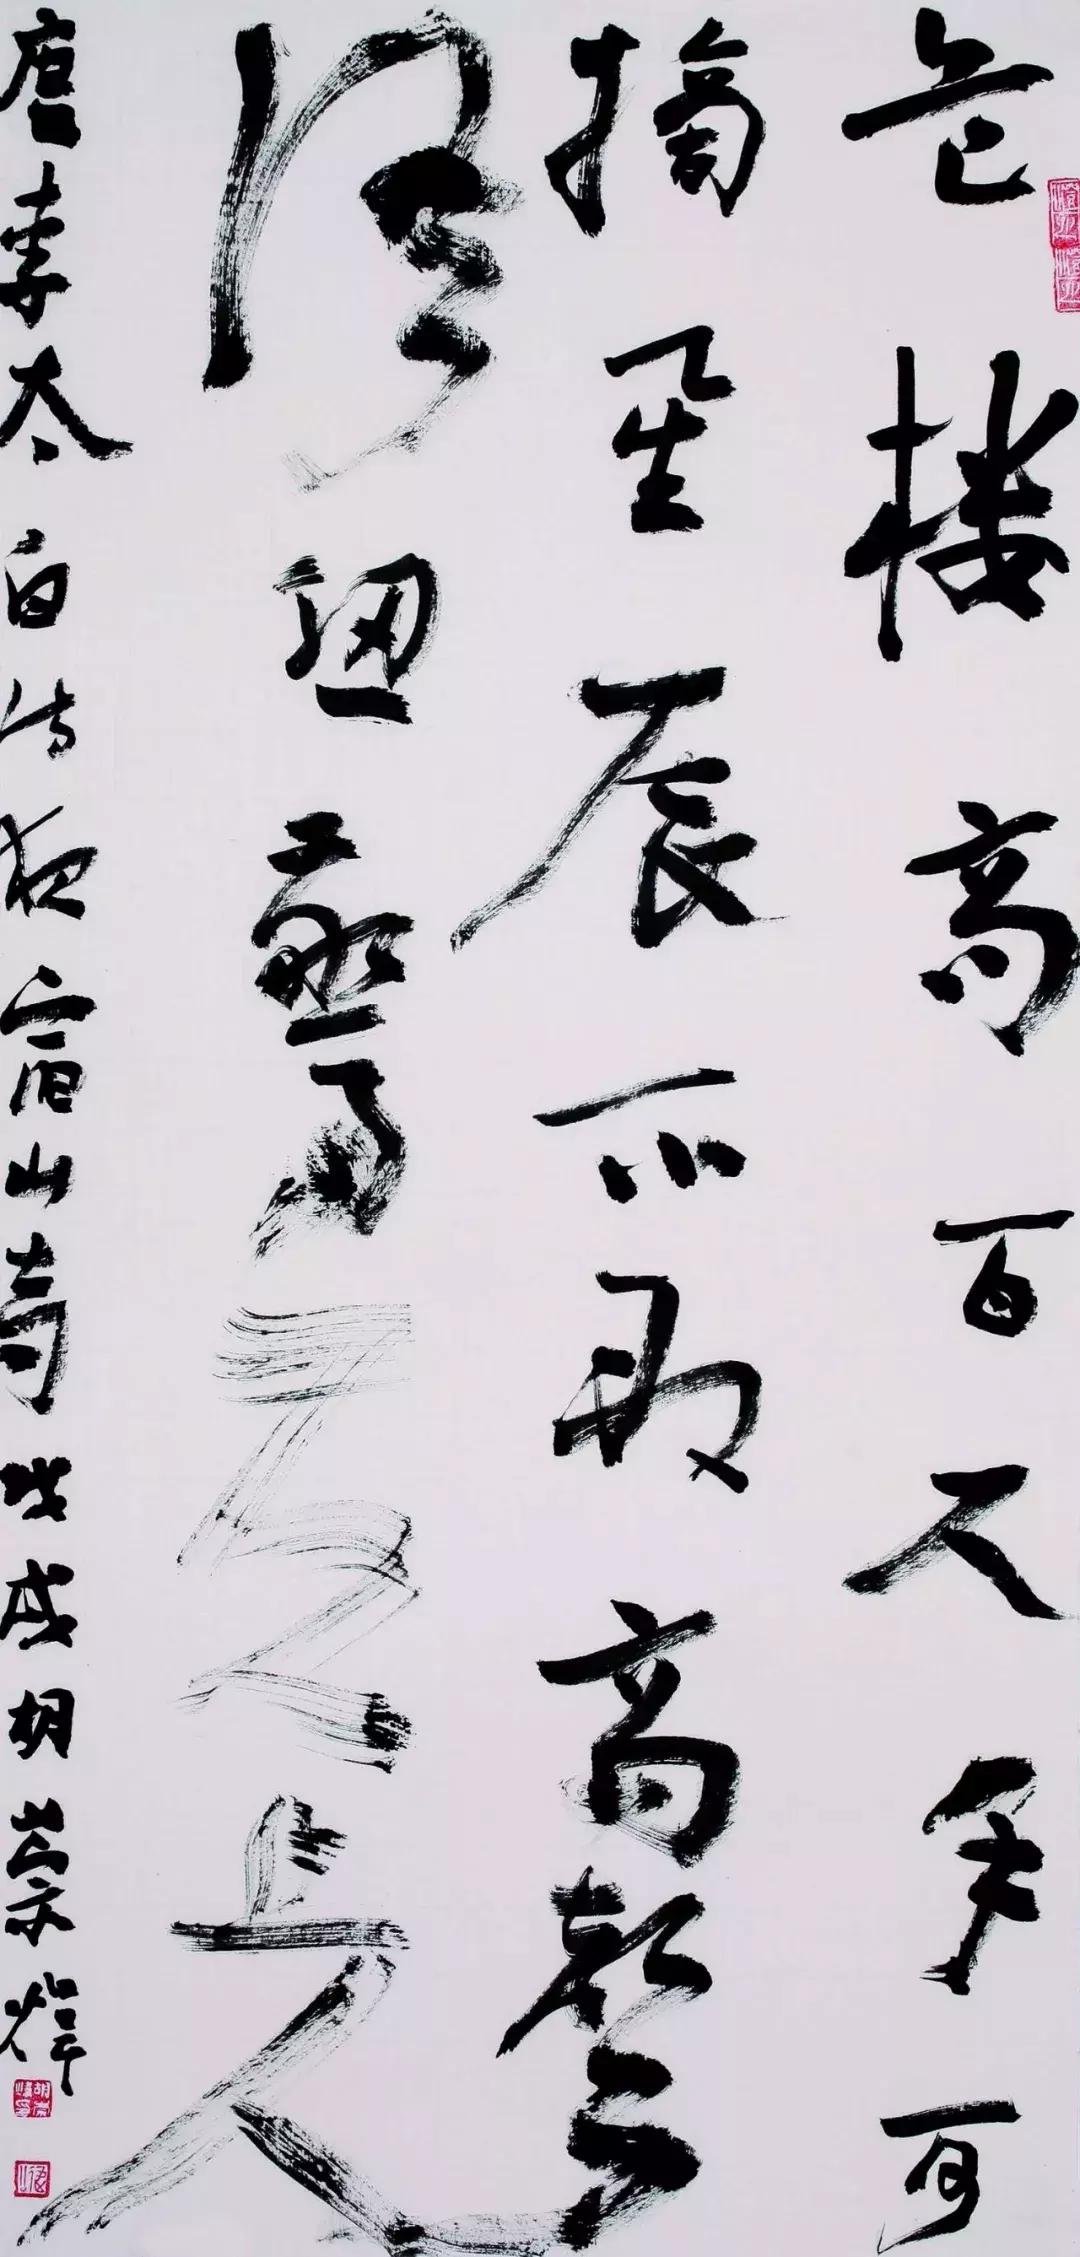 危楼高百尺手可
摘星辰不敢高聲
語恐驚天上人
唐李太白詩夜宿山寺戊戌胡崇煒